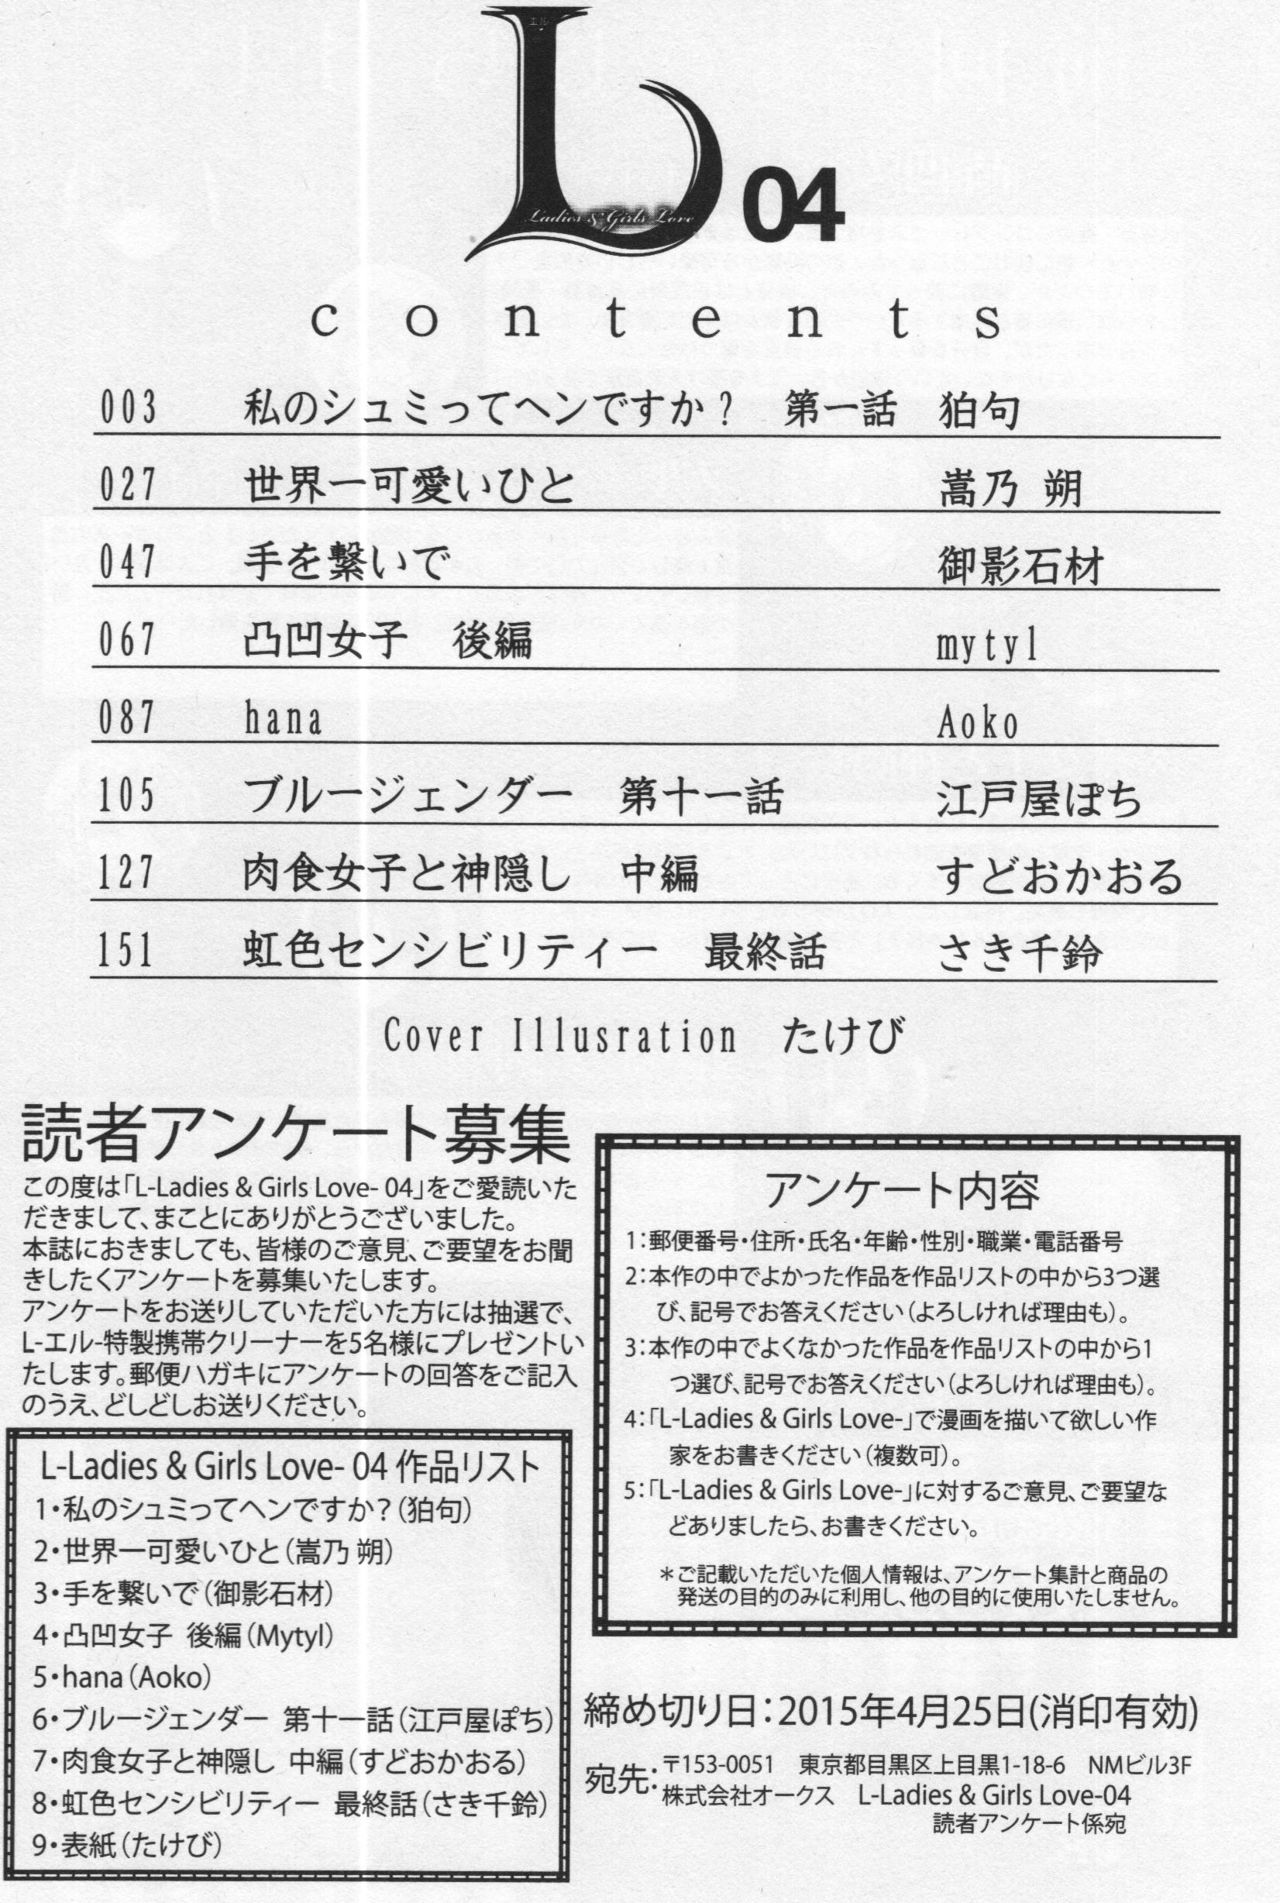 エル
Ladies & Girls Love
L 04
contents
003 私のシュミってヘンですか？ 第一話 狛句
027 世界一可愛いひと 嵩乃 朔
047 手を繋いで 御影石材
067 凸凹女子 後編 mytyl
087 hana Aoko
105 ブルージェンダー 第十一話 江戸屋ぽち
127 肉食女子と神隠し 中編 すどおかおる
151 虹色センシビリティー 最終話 さき千鈴
Cover Illusration たけび
読者アンケート募集
この度は「L-Ladies & Girls Love- 04」をご愛読いた
だきまして、まことにありがとうございました。
本誌におきましても、皆様のご意見、ご要望をお聞
きしたくアンケートを募集いたします。
アンケートをお送りしていただいた方には抽選で、
L-エル-特製携帯クリーナーを5名様にプレゼントい
たします。郵便ハガキにアンケートの回答をご記入
のうえ、どしどしお送りください。
L-Ladies & Girls Love- 04 作品リスト
1・私のシュミってヘンですか？（狛句）
2・世界一可愛いひと（嵩乃 朔）
3・手を繋いで（御影石材）
4・凸凹女子 後編（Mytyl）
5・hana（Aoko）
6・ブルージェンダー 第十一話（江戸屋ぽち）
7・肉食女子と神隠し 中編（すどおかおる）
8・虹色センシビリティー 最終話（さき千鈴）
9・表紙（たけび）
アンケート内容
1：郵便番号・住所・氏名・年齢・性別・職業・電話番号
2：本作の中でよかった作品を作品リストの中から3つ選
び、記号でお答えください（よろしければ理由も）。
3：本作の中でよくなかった作品を作品リストの中から1
つ選び、記号でお答えください（よろしければ理由も）。
4：「L-Ladies & Girls Love-」で漫画を描いて欲しい作
家をお書きください（複数可）。
5：「L-Ladies & Girls Love-」に対するご意見、ご要望な
どありましたら、お書きください。
＊ご記載いただいた個人情報は、アンケート集計と商品の
発送の目的のみに利用し、他の目的に使用いたしません。
締め切り日：2015年4月25日(消印有効)
宛先：〒153-0051 東京都目黒区上目黒1-18-6 NMビル3F
株式会社オークス L-Ladies & Girls Love-04
読者アンケート係宛